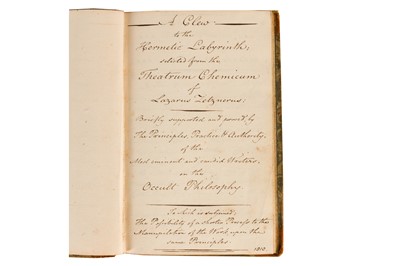 A Clew
to the
Hermetic Labyrinth,
selected from the
Theatrum Chemicum
of
Lazarus Zetznerus;
Briefly supported and proved by
The Principles, Practice & Authority,
of the
Most eminent and candid Writers,
on the
Occult Philosophy
To which is subjoined,
The Possibility of a shorter Process to the
Manipulation of the Work upon the
same Principles